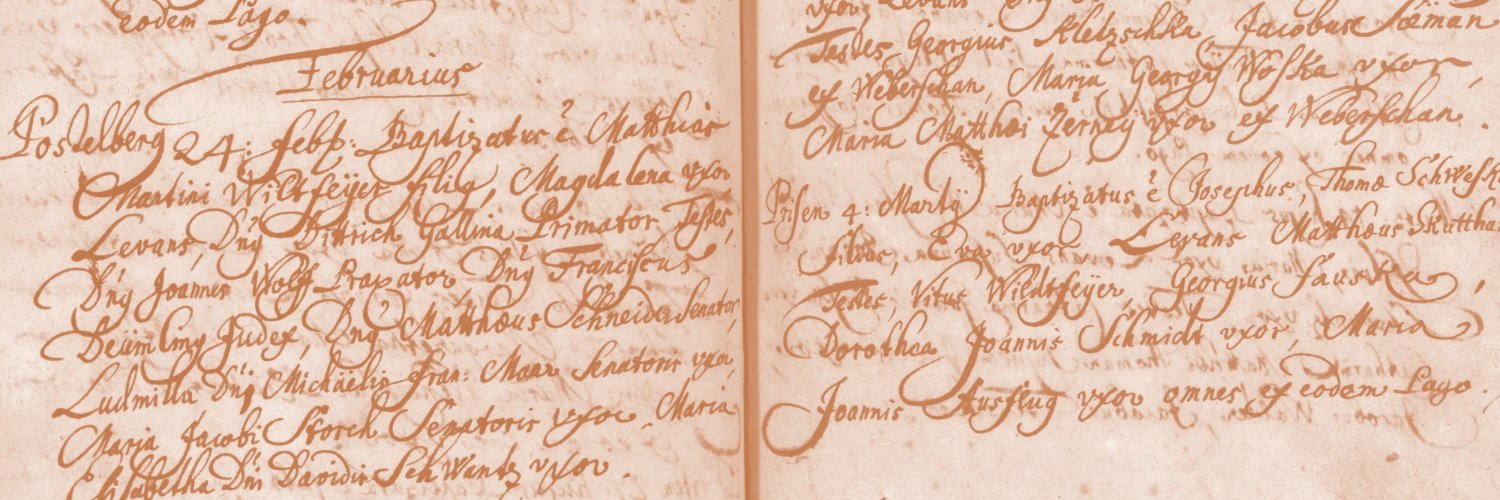 eodem Pago.
Februarius
Postelberg 24: feb: Baptizatus ē Matthias
Martini Wiltfeÿer filig, Magdalena uxor
Levans, Dn̄g Dittrich Gallina Primator Testes,
Dn̄g Joannes Wolff Dn̄g Franciscus
Judex, Dn̄g Matthæus Schneider Senator,
Ludmilla Dn̄j Michaëlis Fran: Maar Senatoris uxor,
Maria Jacobi Storch Senatoris uxor, Maria
Elisabetha Dn̄i Davidis Schwantz uxor.
uxor, Levans
Testes Georgius Kletzschka, Jacobus Zeman
ex Weberschan, Maria Georgÿ Woska uxor,
Maria Matthæi Zerneÿ uxor ex Weberschan.
Prisen 4: Martÿ Baptizatus ē Josephus, Thomæ
filius, Eva uxor, Levans Matthæus
Testes, Vitus Wildtfeÿer, Georgius Fauska,
Dorothea Joannis Schmidt uxor, Maria
Joannis Ausflug uxor omnes ex eodem Pago.